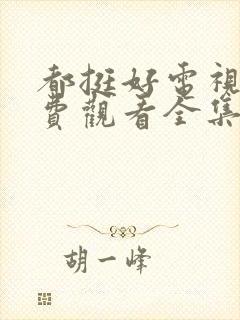 都挺好電視
費觀看全集
胡一峰